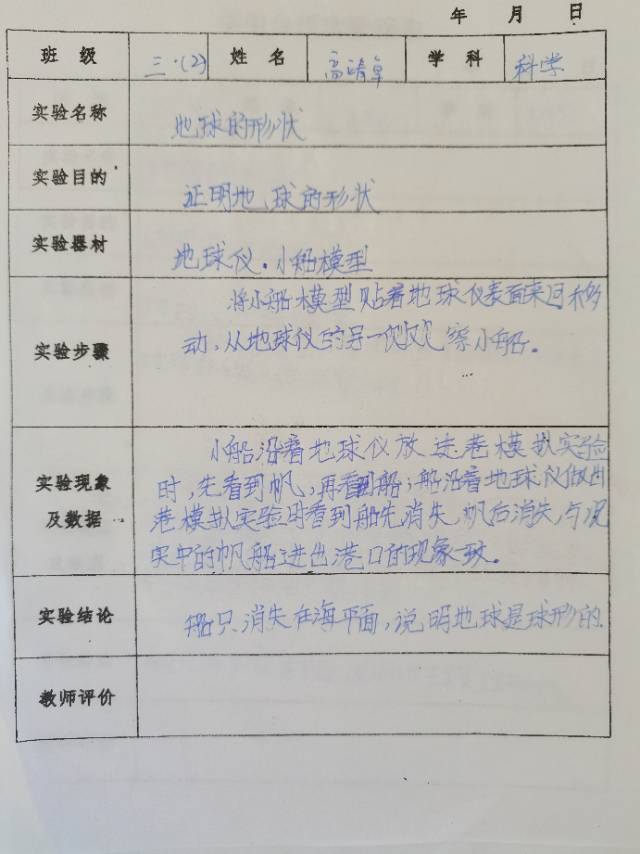 年 月 日
班 级 三.(2) 姓 名 高靖卓 学 科 科学
实验名称 地球的形状
实验目的 证明地球的形状
实验器材 地球仪.小船模型
实验步骤
将小船模型贴着地球仪表面来回移
动,从地球仪的另一侧观察小船。
实验现象及数据
小船沿着地球仪放进港模拟实验
时,先看到帆,再看到船;船沿着地球仪做出
港模拟实验时看到船先消失,帆后消失,与现
实中的帆船进出港口的现象一致。
实验结论 船只消失在海平面,说明地球是球形的.
教师评价